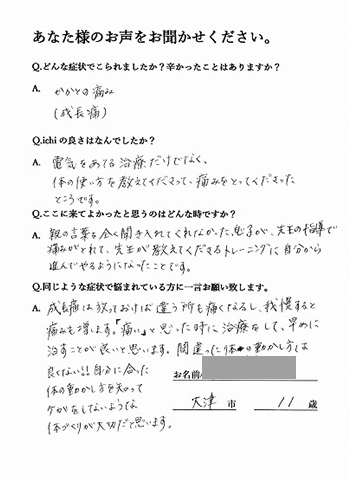 あなた様のお声をお聞かせください。
Q.どんな症状でこられましたか？辛かったことはありますか？
A. かかとの痛み
(成長痛)
Q.ichiの良さはなんでしたか？
A. 電気をあてる治療だけでなく、
体の使い方を教えてくださって、痛みをとってくださった
ところです。
Q.ここに来てよかったと思うのはどんな時ですか？
A. 親の言葉を全く聞き入れてくれなかった息子が、先生の指導で
痛みがとれて、先生が教えてくださるトレーニングに自分から
進んでやるようになったことです。
Q.同じような症状で悩まれている方に一言お願い致します。
A. 成長痛は放っておけば違う所も痛くなるし、我慢すると
痛みも増します。「痛い」と思った時に治療をして、早めに
治すことが良いと思います。間違った体の動かし方は
良くない!!自分に合った
体の動かし方を知って
ケガをしないような
体づくりが大切だと思います。
お名前
大津 市 11 歳